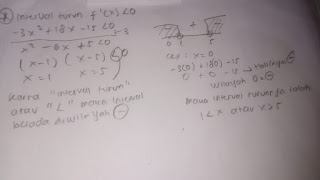 Interval turun f'(x) < 0
-3x² + 18x - 15 < 0
: -3
x² - 6x + 5 < 0
(x-1) (x-5) < 0
x = 1 x = 5
karna "interval turun"
atau "<" maka interval
berada diwilayah ⊖
0 1 5
cek : x = 0
-3(0) + 18(0) - 15
0 + 0 - 15 → hasilnya ⊖
wilayah 0 = ⊖
maka interval turunnya ialah
1 < x atau x > 5